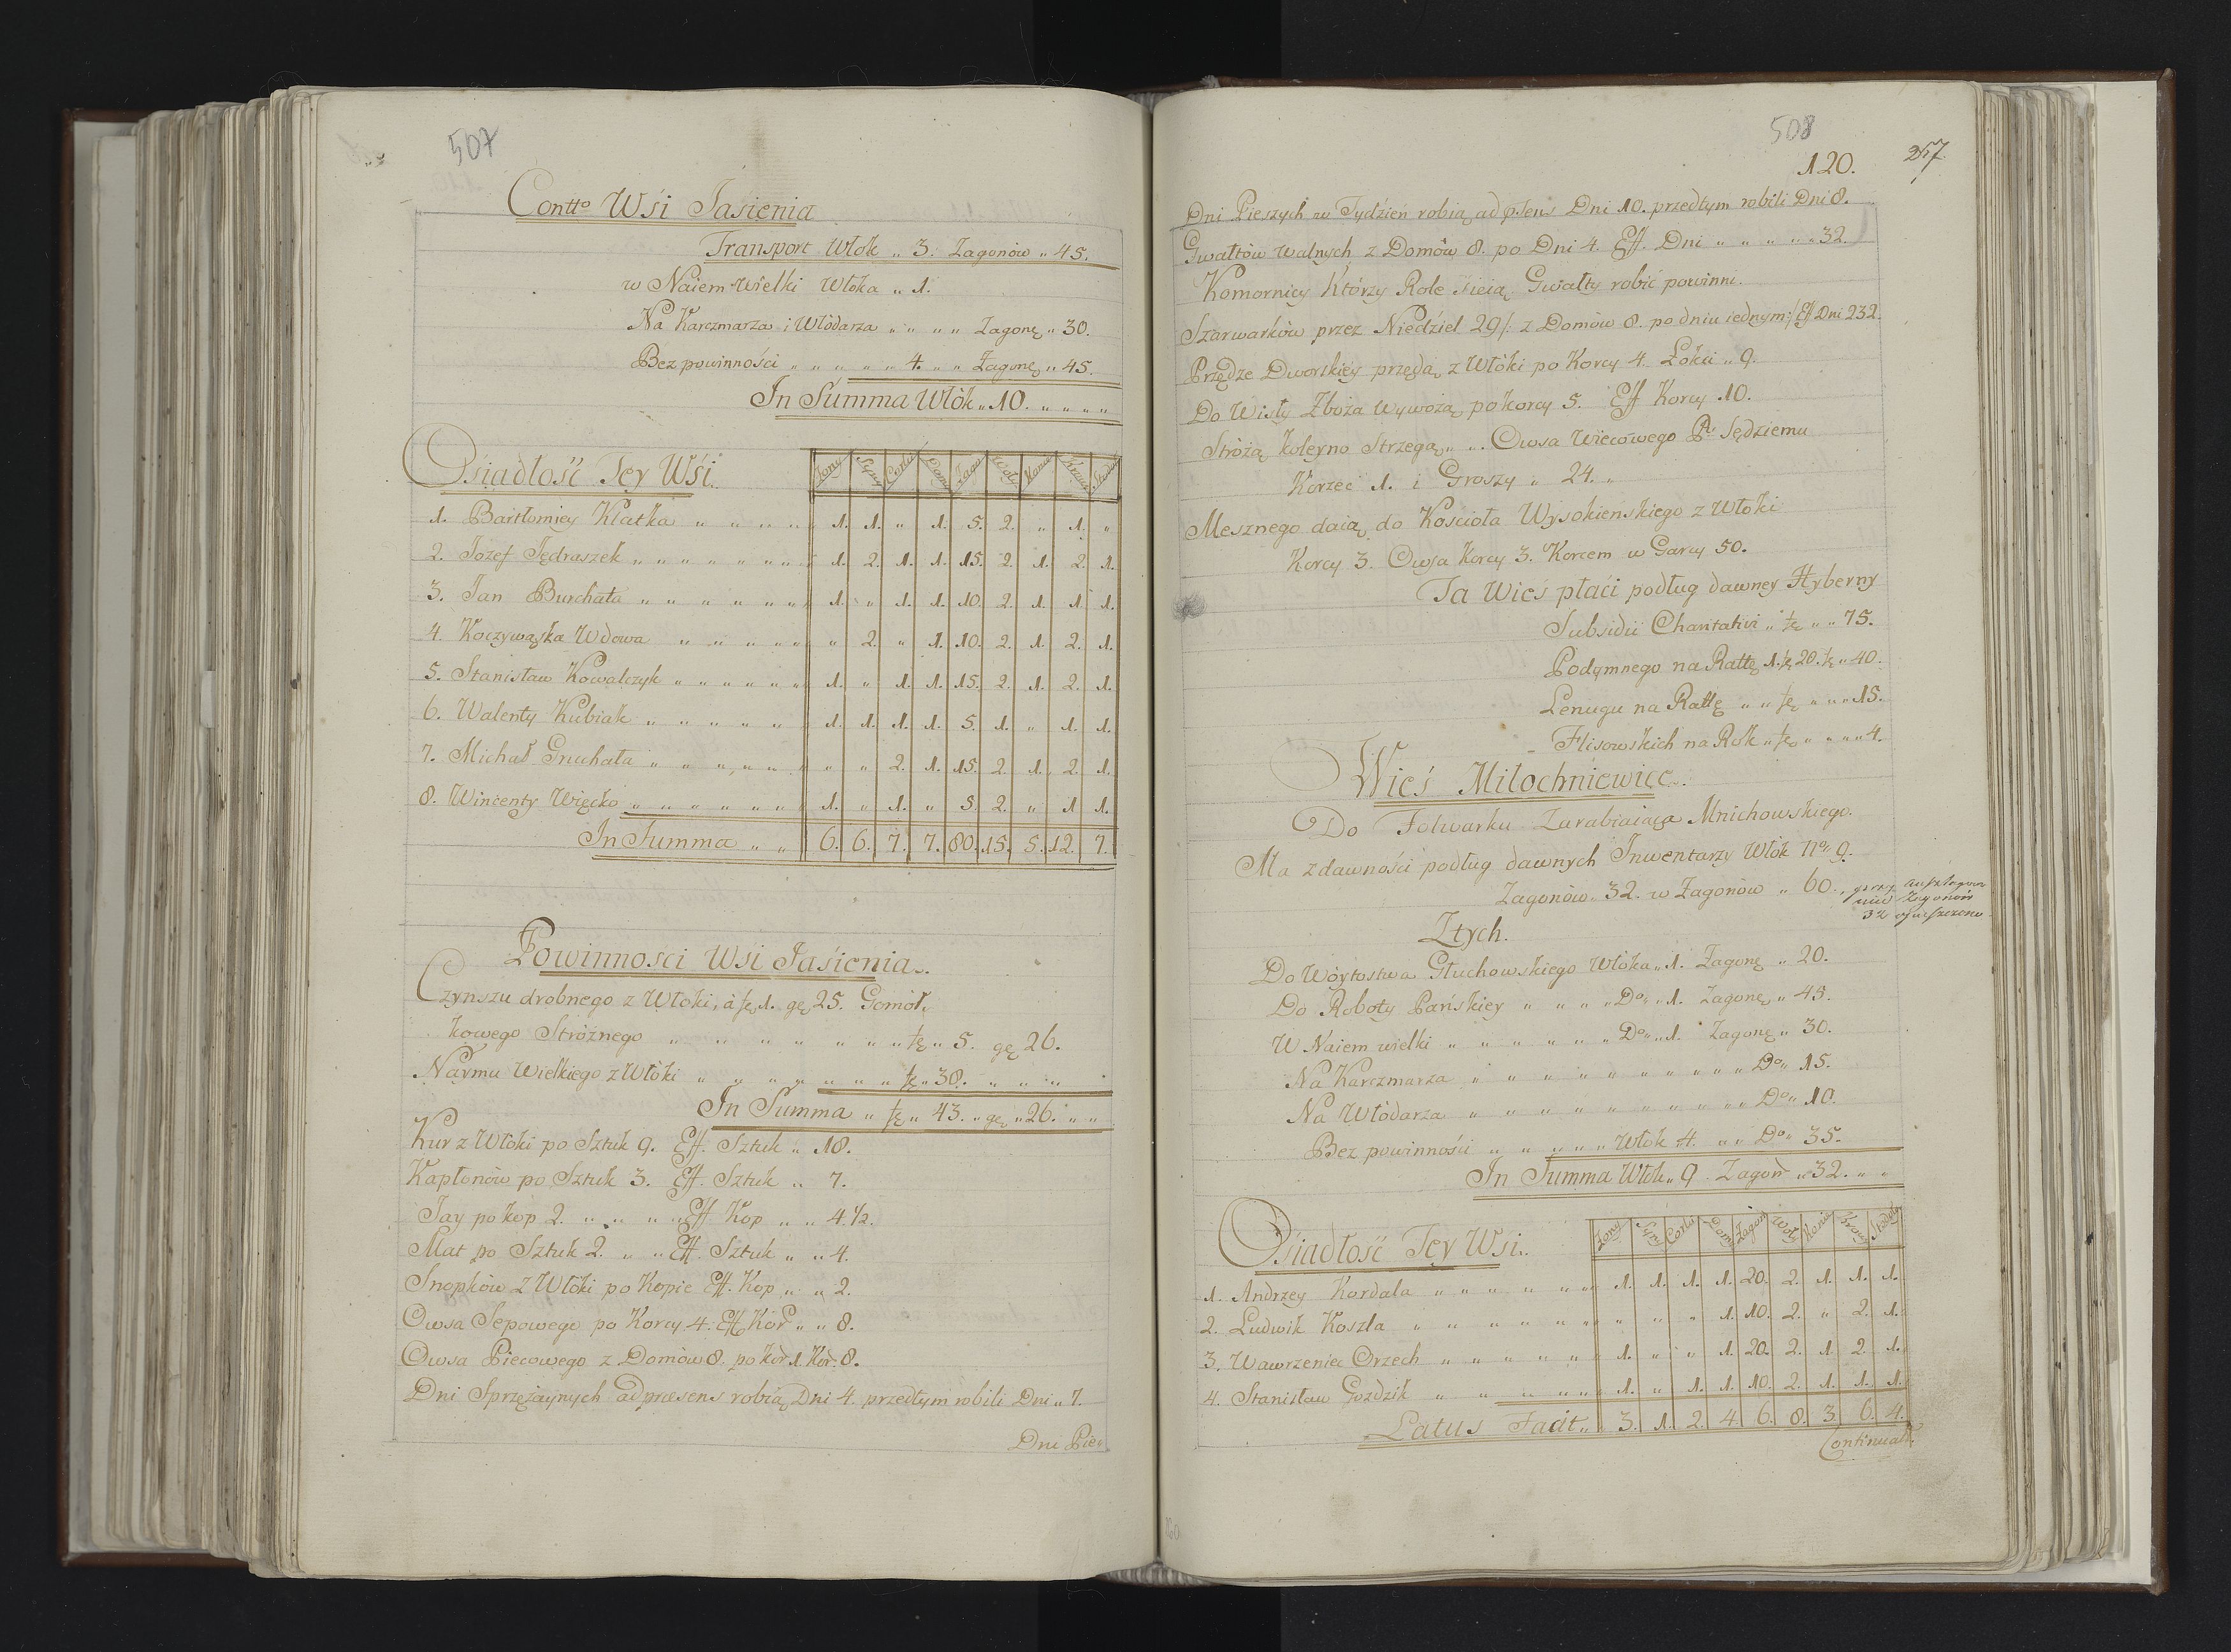 507
Contto Wsi Jasienia
Transport Włok „ 3. Zagonów „ 45.
w Naiem Wielki Włoka „ 1.
Na Karczmarza i Włodarza „ „ „ „ Zagonę „ 30.
Bez powinności „ „ „ „ „ 4. „ „ Zagonę „ 45.
In Summa Włók „ 10. „ „ „ „
Osiadłość Tey Wśi. Żony Syny Corki Domy Zago Woły Konie Krowy Stodoł
1. Bartłomiey Klatka „ „ „ „ „ 1. 1. „ 1. 5. 2. „ 1. „
2. Jozef Jędraszek „ „ „ „ „ „ „ „ 1. 2. 1. 1. 15. 2. 1. 2. 1.
3. Jan Burchata „ „ „ „ „ „ „ 1. „ 1. 1. 10. 2. 1. 1. 1.
4. Koczywąska Wdowa „ „ „ „ „ „ „ 2. „ 1. 10. 2. 1. 2. 1.
5. Stanisław Kowalczyk „ „ „ „ „ „ „ 1. „ 1. 1. 15. 2. 1. 2. 1.
6. Walenty Kubiak „ „ „ „ „ „ 1. 1. 1. 1. 5. 1. „ 1. 1.
7. Michał Gruchała „ „ „ „ „ „ „ „ 2. 1. 15. 2. 1. 2. 1.
8. Wincenty Więcko „ „ „ „ „ „ „ 1. „ 1. „ 5. 2. „ 1 1.
In Summa „ „ 6. 6. 7. 7. 80. 15. 5. 12. 7.
Powinnosci Wsi Jasienia.
Czynszu drobnego z Włoki, à fę. 1. gę 25. Gomół„
kowego Stróżnego „ „ „ „ „ „ „ fę „ 5. gę 26.
Naymu Wielkiego z Włóki „ „ „ „ „ „ „ fę „ 38. „ „ „
In Summa „ fę „ 43. „ gę „ 26. „ „
Kur z Włoki po Sztuk 9. Eff. Sztuk „ 18.
Kapłonów po Sztuk 3. Eff. Sztuk „ 7.
Jay po kop 2. „ „ „ „ Eff Kop „ „ 4. 1/2.
Mat po Sztuk 2. „ „ Eff. Sztuk „ „ 4.
Snopków z Włóki po Kopie Eff. Kop „ „ 2.
Owsa Sepowego po Korcy 4. Eff Kor „ „ 8.
Owsa Piecowego z Domów 8. po kor. 1. Kor: 8.
Dni Sprzężaynych ad præsens robią Dni 4. przedtym robili Dni „ 7.
Dni Pie„
508
120.
257
Dni Pieszych w Tydzień robią ad p̃sens Dni 10. przedtym robili Dni 8.
Gwałtów walnych z Domów 8. po Dni 4. Eff. Dni „ „ „ „ „ 32.
Komornicy Którzy Role sieią Gwałty robić powinni.
Szarwarków przez Niedziel 29 /: z Domów 8. po dniu iednym :/ Eff Dni 232.
Przędze Dworskiey przędą z Włóki po Korcy 4. Łokci „ 9.
Do Wisły Zboża wywożą po korcy 5. Eff Korcy 10.
Stróżą koleyno Strzegą „ „ Owsa Wiecowego P. Sędziemu
Korzec 1. i Groszy „ 24. „
Mesznego daią do Kościoła Wysokienskiego z Włoki
Korcy 3. Owsa Korcy 3. Korcem w Garcy 50.
Ta Wieś płaci podług dawney Hyberny
Subsidii Charitativi „ fę „ „ 75.
Podymnego na Rattę 1. fę 20. fę „ 40.
Lenugu na Rattę „ „ fę „ „ „ 15.
Flisowskich na Rok „ fę „ „ „ „ 4.
Wieś Miłochniewice.
Do Folwarku Zarabiaiąca Mnichowskiego.
Ma z dawności podług dawnych Inwentarzy Włók no. 9.
Zagonów „ 32. w Zagonów „ 60.
32
Ztych.
Do Woytostwa Głuchowskiego Włóka „ 1. Zagonę „ 20.
Do Roboty Pańskiey „ „ „ „ Do „ „ 1. Zagonę „ 45.
W Naiem wielki „ „ „ „ „ „ Do „ „ 1. Zagonę „ 30.
Na Karczmarza „ „ „ „ „ „ „ „ „ Do „ 15.
Na Włódarza „ „ „ „ „ „ „ „ „ Do „ 10.
Bez powinności „ „ „ „ „ Włók 4. „ „ Do „ 35.
In Summa Włók „ 9 Zagon „ 32. „ „
Osiadłość Tey Wsi. Żony Syny Corki Domy Zagon Woły Konie Krowy Stodoły
1. Andrzey Kordala „ „ „ „ „ „ 1. 1. 1. 1. 20. 2. 1. 1. 1.
2. Ludwik Koszla „ „ „ „ „ „ „ „ „ 1. 10. 2. „ 2. 1.
3. Wawrzeniec Orzech „ „ „ „ „ „ 1. „ „ 1. 20. 2. 1. 2. 1.
4. Stanisław Gozdzik „ „ „ „ „ 1. „ 1. 1. 10. 2. 1. 1. 1.
Latus Facit „ 3. 1. 2. 4. 6. 8. 3. 6. 4.
Continuatt.